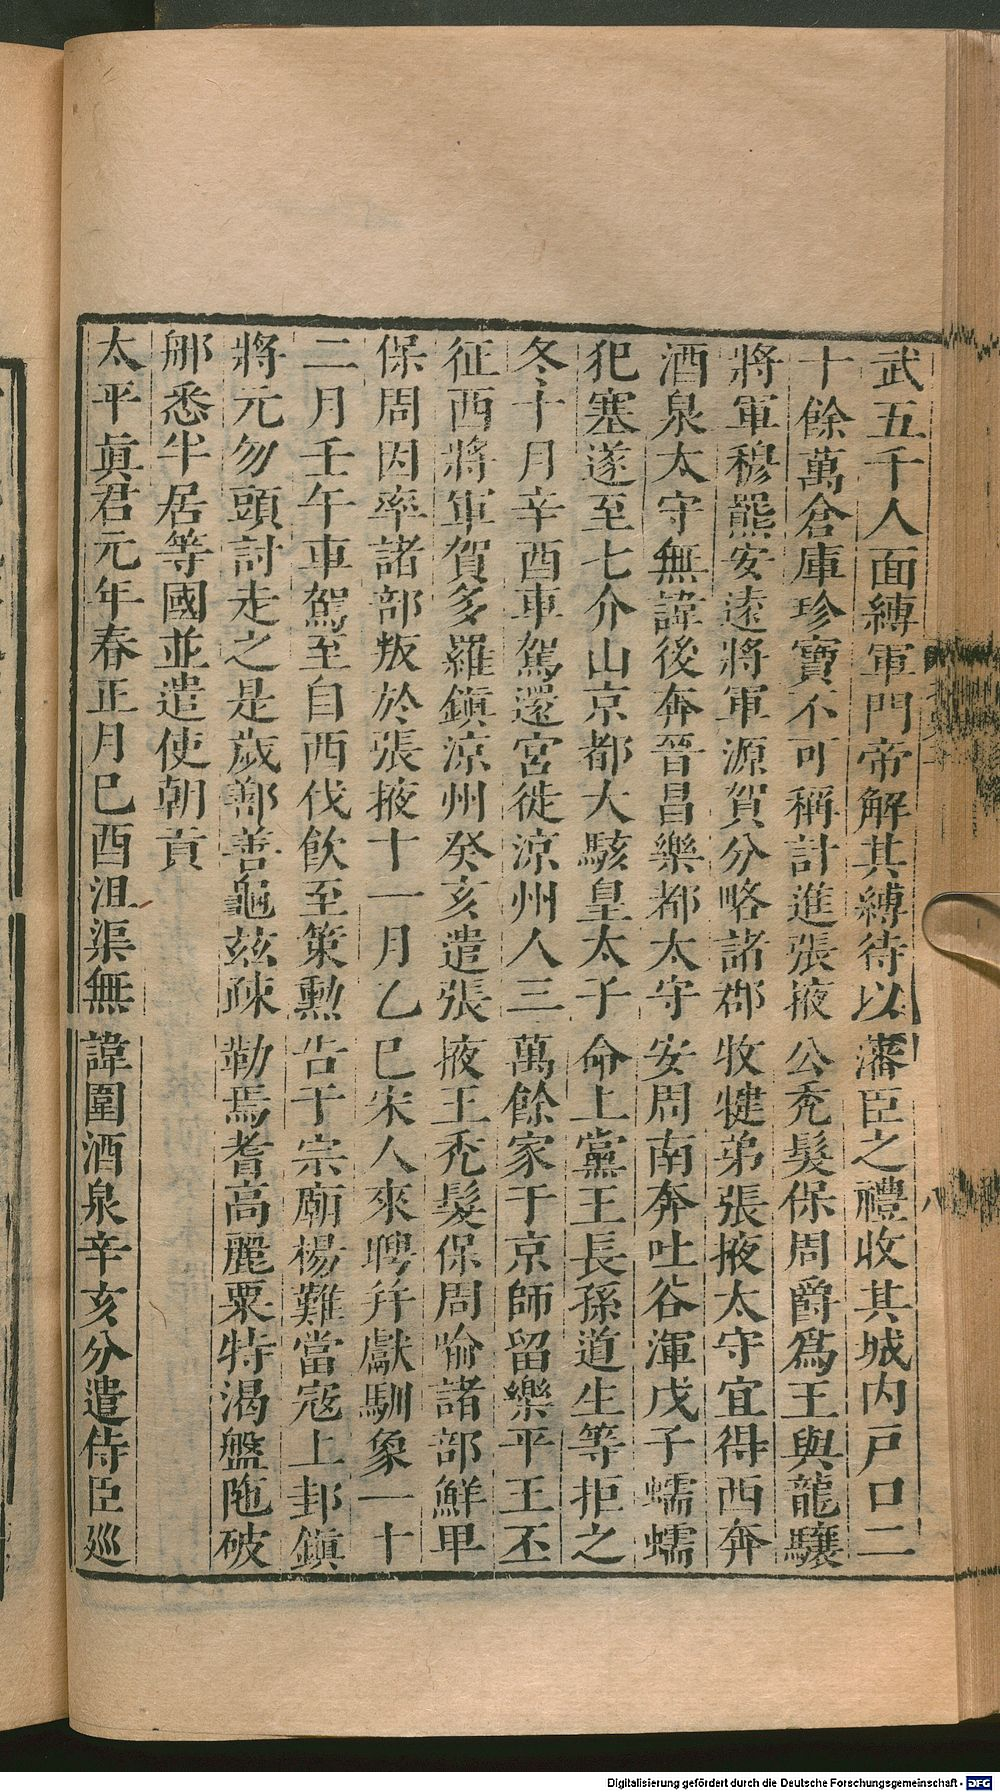 武五千人面縛軍門帝解其縛待以藩臣之禮收其城内戸口二
十餘萬倉庫珍寶不可稱計進張掖公禿髮保周爵爲王與龍驤
將軍穆羆安遠將軍源賀分略諸郡牧犍弟張掖太守宜得西奔
酒泉太守無諱後奔晉昌樂都太守安周南奔吐谷渾戊子蠕蠕
犯塞遂至七介山京都大駭皇太子命上黨王長孫道生等拒之
冬十月辛酉車駕還宮徙涼州人三萬餘家于京師留樂平王丕
征西將軍賀多羅鎮涼州癸亥遣張掖王禿髮保周喻諸部鮮卑
保周因率諸部叛於張掖十一月乙巳宋人來聘并獻馴象一十
二月壬午車駕至自西伐飲至策勲告于宗廟楊難當寇上邽鎮
將元勿頭討走之是歲鄯善龜茲疎勒焉耆高麗粟特渴盤陁破
那悉半居等國並遣使朝貢
太平眞君元年春正月巳酉沮渠無諱圍酒泉辛亥分遣侍臣廵
八
Digitalisierung gefördert durch die Deutsche Forschungsgemeinschaft - DFG